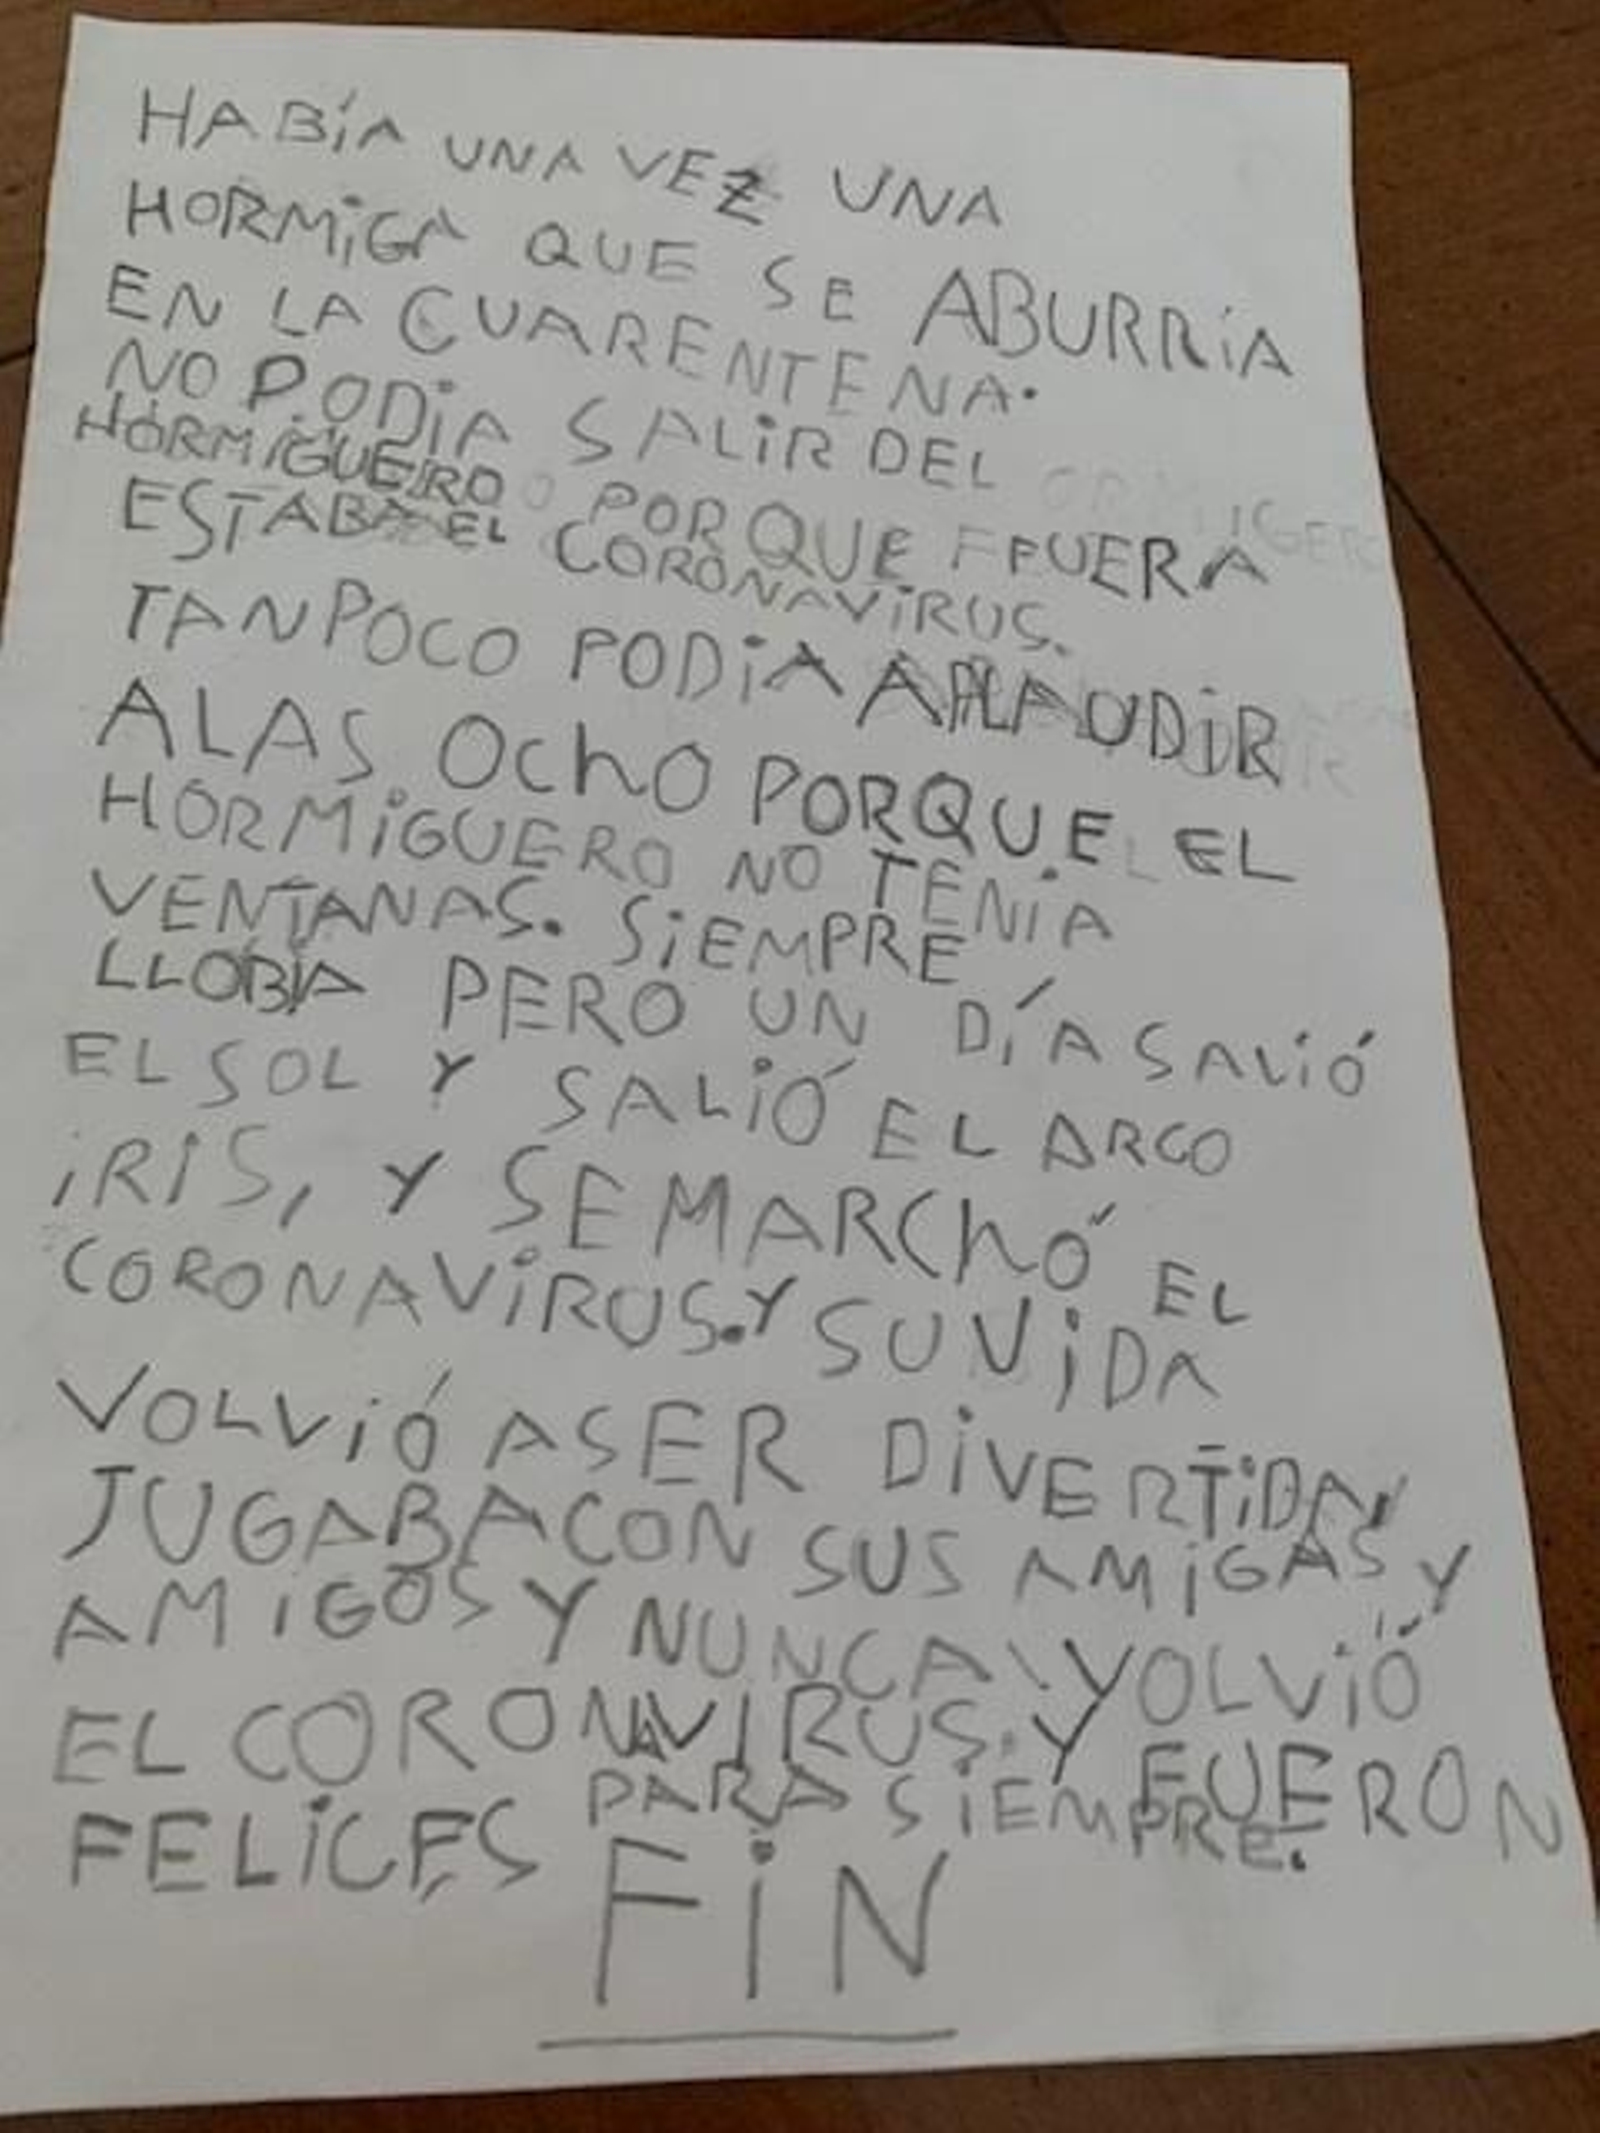 HABÍA UNA VEZ UNA
HORMIGA QUE SE ABURRÍA
EN LA CUARENTENA.
NO PODIA SALIR DEL
HORMIGUERO PORQUE FUERA
ESTABA EL CORONAVIRUS.
TANPOCO PODIA APLAUDIR
ALAS OCHO PORQUE EL
HORMIGUERO NO TENIA
VENTANAS. SIEMPRE
LLOBIA PERO UN DÍA SALIÓ
EL SOL Y SALIÓ EL ARCO
IRIS, Y SE MARCHÓ EL
CORONAVIRUS. Y SU VIDA
VOLVIÓ ASER DIVERTIDA,
JUGABA CON SUS AMIGAS Y
AMIGOS Y NUNCA VOLVIÓ
EL CORONAVIRUS. Y FUERON
FELICES PARA SIEMPRE.
FIN